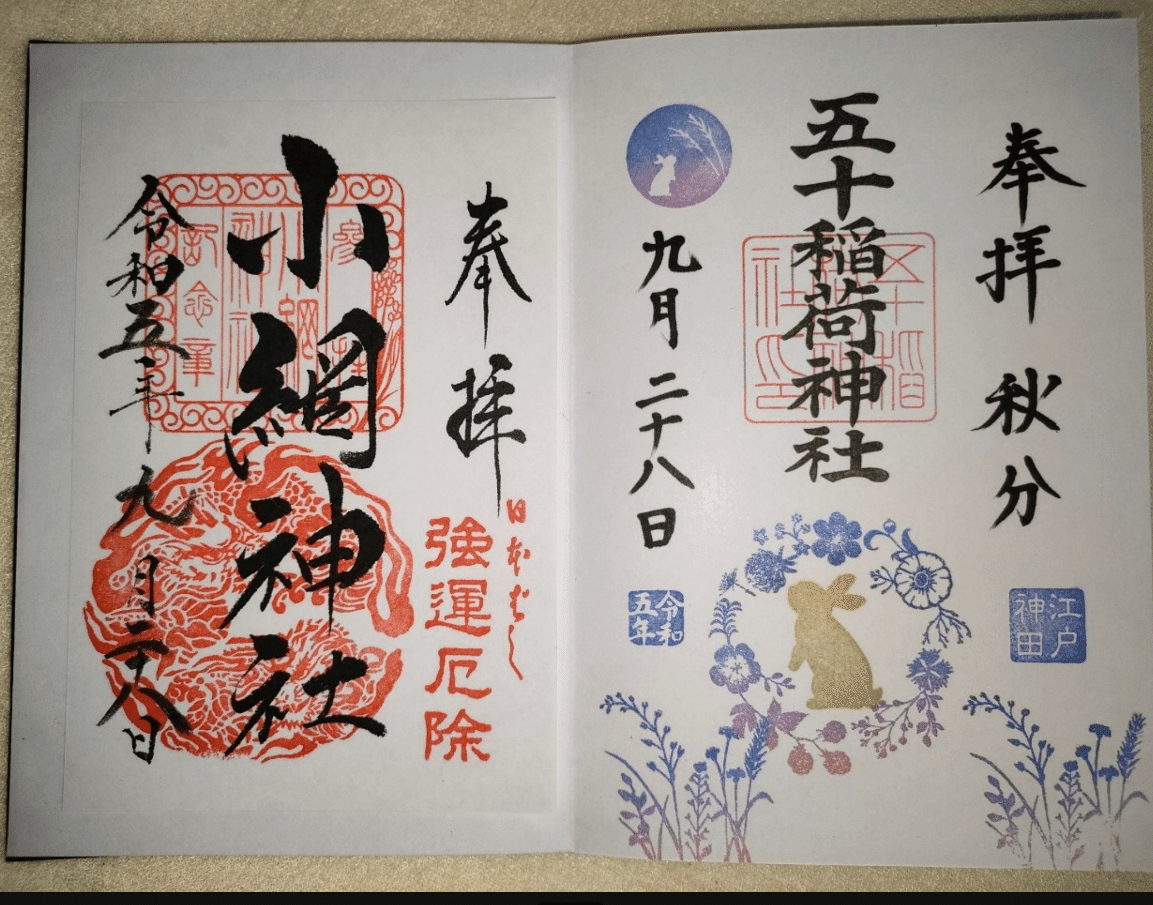 奉拝 秋分
江戸
神田
五十稲荷神社
九月二十八日
令和
五年
奉拝
日本ばし
強運厄除
小網神社
令和五年九月二十八日